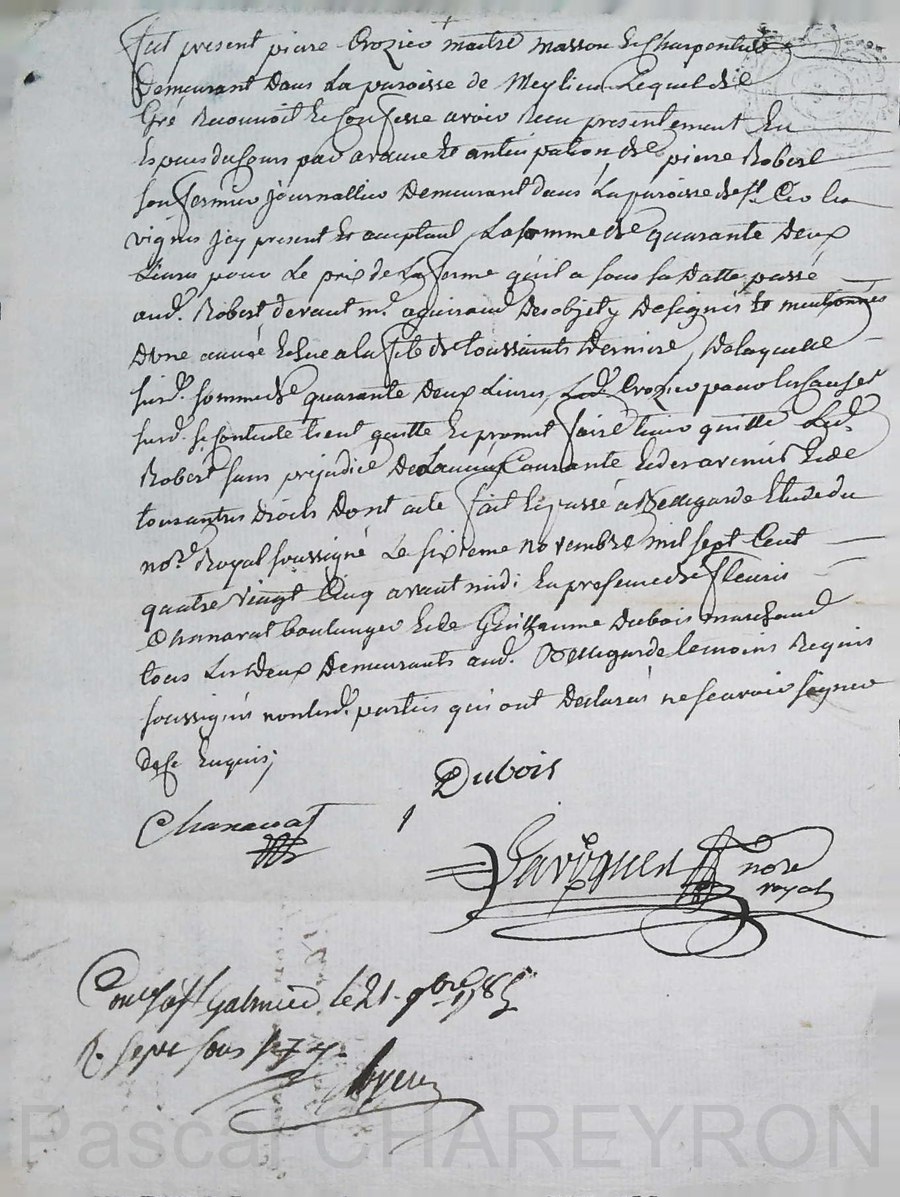 fut present pierre Crozier maitre masson et Charpentier
Demeurant Dans La paroisse de Meylieu Lequel de
Gré Reconnoit et Confesse avoir Recu presentement En
Especes du Cours par avance et anticipation de pierre Robert
son fermier journallier Demeurant dans La paroisse de St. Cir les
vignes icy present et aceptant, La somme de quarante Deux
Livres pour Le prix de La ferme qu'il a sous sa Datte passé
aud. Robert devant me. aguiraud Des objets Designés et mentionnés
D'une année Echue a la fete de toussaints Derniere, De laquelle
surd. somme de quarante Deux Livres, Led. Crozier pour les causes
surd. se Contente tient quitte et promet faire tenir quitte Led.
Robert sans prejudice De L'année Courante et des avenir et de
tous autres Droits Dont acte fait et passé a Bellegarde Etude du
nore. Royal soussigné Le sixieme novembre mil sept Cent
quatre vingt Cinq avant midi En presence de fleuris
Channarat boulanger et de Guillaume Dubois marchand
tous Les Deux Demeurants aud. Bellegarde temoins Requis
soussignés non lesd. parties qui ont Declarés ne scavoir signer
de ce Enquis;
Dubois
Chanarat
nore
royal
Conlé a St Galmier le 21. 9bre 1785
R. sept sous six d.
Pascal CHAREYRON